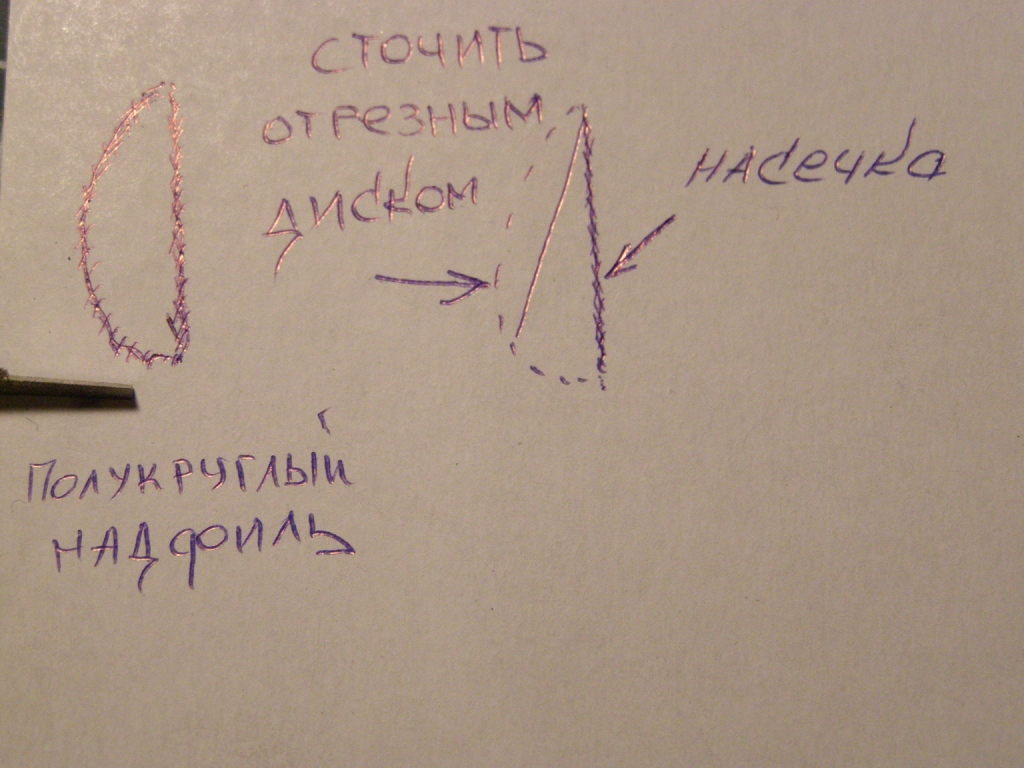 сточить
отрезным
диском
насечка
полукруглый
надфиль